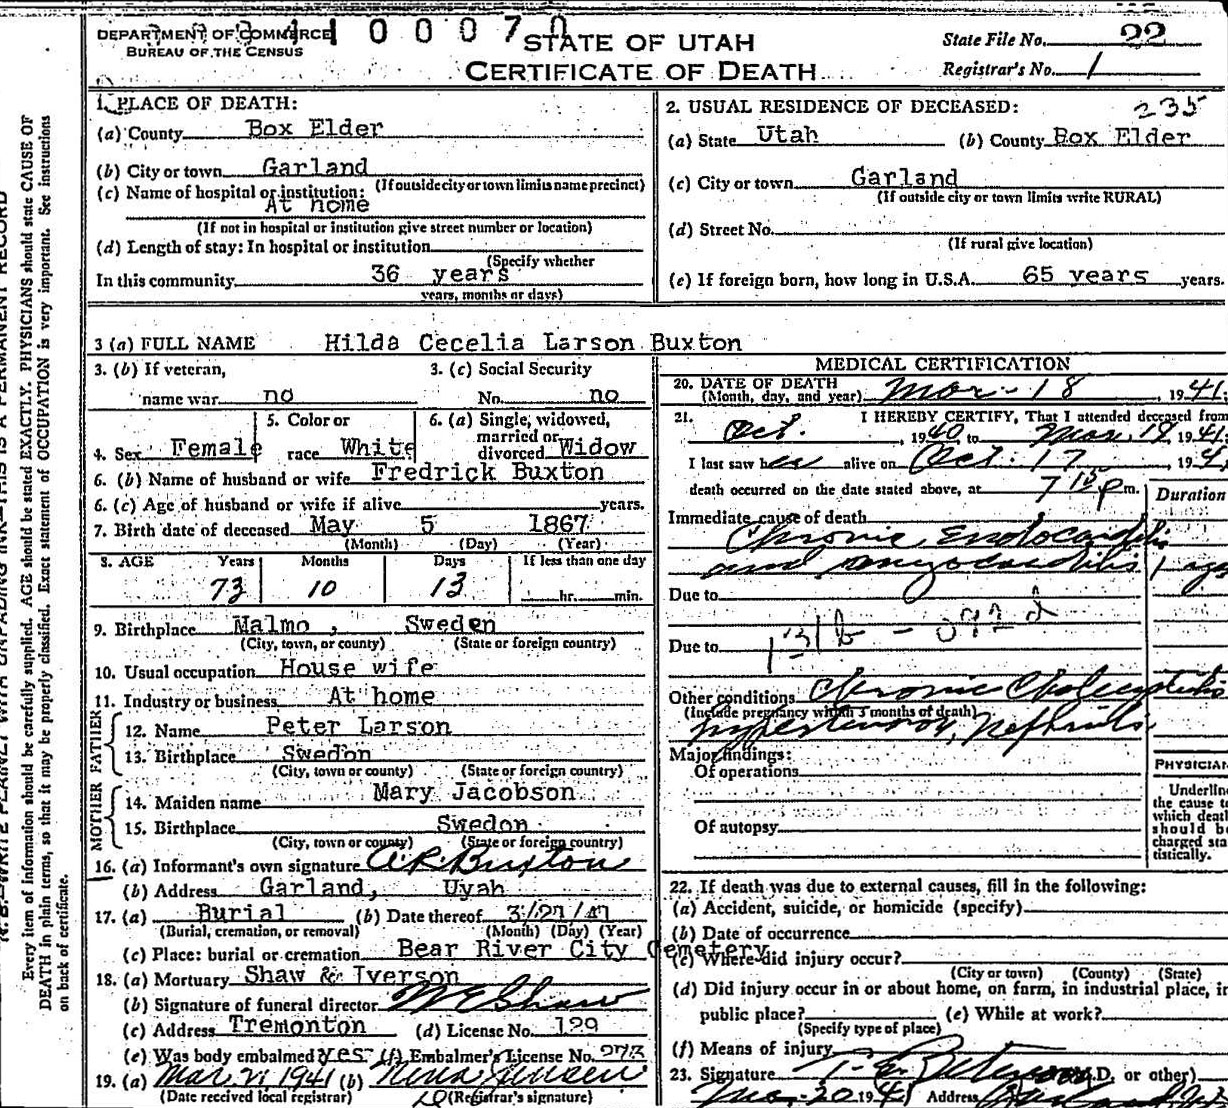 DEPARTMENT OF COMMERCE
BUREAU OF THE CENSUS
110007 0
STATE OF UTAH
CERTIFICATE OF DEATH
State File No. 22
Registrar's No. 1
1. PLACE OF DEATH:
(a) County Box Elder
(b) City or town Garland
(If outside city or town limits name precinct)
(c) Name of hospital or institution:
At home
(If not in hospital or institution give street number or location)
(d) Length of stay: In hospital or institution
(Specify whether
In this community 36 years
years, months or days)
2. USUAL RESIDENCE OF DECEASED: 235
(a) State Utah (b) County Box Elder
(c) City or town Garland
(If outside city or town limits write RURAL)
(d) Street No.
(If rural give location)
(e) If foreign born, how long in U.S.A. 65 years years.
3 (a) FULL NAME Hilda Cecelia Larson Buxton
3. (b) If veteran, name war no
3. (c) Social Security No. no
4. Sex Female
5. Color or race White
6. (a) Single, widowed, married or divorced Widow
6. (b) Name of husband or wife Fredrick Buxton
6. (c) Age of husband or wife if alive years.
7. Birth date of deceased May 5 1867
(Month) (Day) (Year)
8. AGE Years Months Days If less than one day
73 10 13 hr. min.
9. Birthplace Malmo, Sweden
(City, town, or county) (State or foreign country)
10. Usual occupation House wife
11. Industry or business At home
FATHER
12. Name Peter Larson
13. Birthplace Swedon
(City, town or county) (State or foreign country)
MOTHER
14. Maiden name Mary Jacobson
15. Birthplace Swedon
(City, town or county) (State or foreign country)
16. (a) Informant's own signature A.R. Buxton
(b) Address Garland, Uyah
17. (a) Burial (b) Date thereof 3/21/41
(Burial, cremation, or removal) (Month) (Day) (Year)
(c) Place: burial or cremation Bear River City Cemetery
18. (a) Mortuary Shaw & Iverson
(b) Signature of funeral director M E Shaw
(c) Address Tremonton (d) License No. 129
(e) Was body embalmed yes (f) Embalmer's License No. 273
19. (a) Mar 21 1941 (b) Nina Jensen
(Date received local registrar) (Registrar's signature)
MEDICAL CERTIFICATION
20. DATE OF DEATH
(Month, day, and year) Mar - 18, 1941.
21. I HEREBY CERTIFY, That I attended deceased from
Oct., 1940 to Mar. 18, 1941.
I last saw her alive on Oct. 17, 194
death occurred on the date stated above, at 7 15 p m.
Duration
Immediate cause of death
Chronic Endocarditis
and myocarditis 1
Due to
131b - 092 d
Due to
Other conditions Chronic Cholecystitis
(Include pregnancy within 3 months of death)
Hypertension, Nephritis
Major findings:
Of operations
Of autopsy
PHYSICIAN
Underline
the cause to
which death
should b
charged sta
tistically.
22. If death was due to external causes, fill in the following:
(a) Accident, suicide, or homicide (specify)
(b) Date of occurrence
(c) Where did injury occur?
(City or town) (County) (State)
(d) Did injury occur in or about home, on farm, in industrial place, in
public place? (e) While at work?
(Specify type of place)
(f) Means of injury
23. Signature (M.D. or other)
20 194 Address Garland
N. B.—WRITE PLAINLY WITH UNFADING INK—THIS IS A PERMANENT RECORD
Every item of information should be carefully supplied. AGE should be stated EXACTLY. PHYSICIANS should state CAUSE OF
DEATH in plain terms, so that it may be properly classified. Exact statement of OCCUPATION is very important. See instructions
on back of certificate.